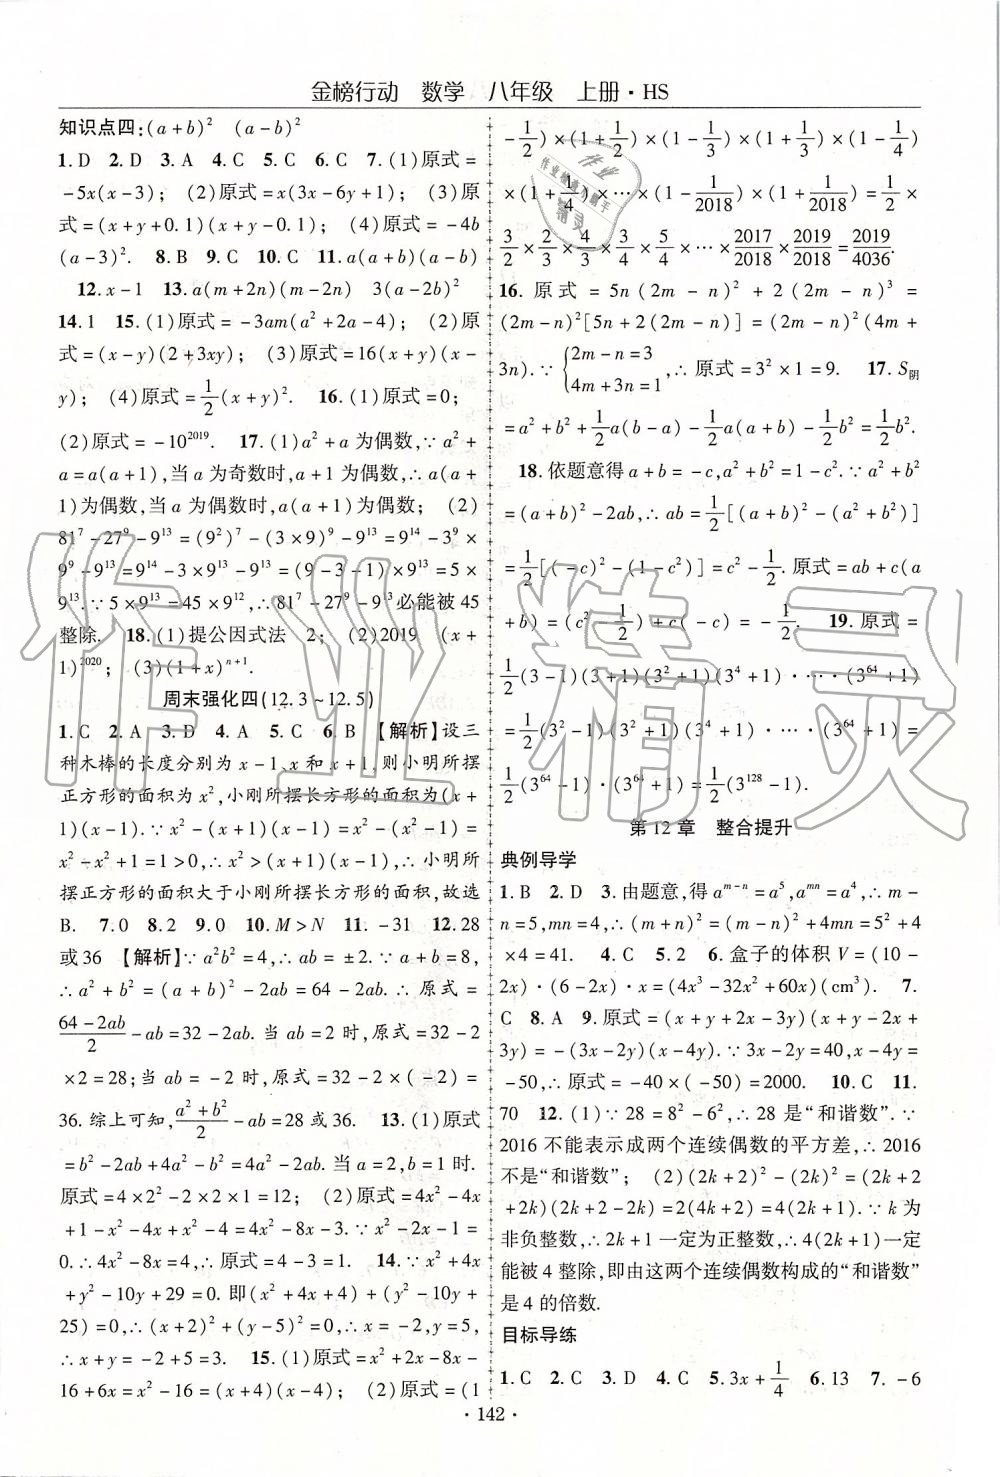 金榜行动 数学 八年级 上册·HS
知识点四:(a+b)² (a-b)²
1.D 2.D 3.A 4.C 5.C 6.C 7.(1)原式=
-5x(x-3); (2)原式=x(3x-6y+1); (3)原
式=(x+y+0.1)(x+y-0.1); (4)原式=-4b
(a-3)². 8.B 9.C 10.C 11.a(a+b)(a-b)
12.x-1 13.a(m+2n)(m-2n) 3(a-2b)²
14.1 15.(1)原式=-3am(a²+2a-4); (2)原
式=(x-y)(2+3xy); (3)原式=16(x+y)(x-
y); (4)原式=1/2(x+y)². 16.(1)原式=0;
(2)原式=-10²⁰¹⁹. 17.(1)a²+a为偶数,∵a²+
a=a(a+1),当a为奇数时,a+1为偶数,∴a(a+
1)为偶数,当a为偶数时,a(a+1)为偶数; (2)
81⁷-27⁹-9¹³=(9²)⁷-(3×9)⁹-9¹³=9¹⁴-3⁹
×9⁹-9¹³=9¹⁴-3×9¹³-9¹³=(9-3-1)×9¹³=5×
9¹³.∵5×9¹³=45×9¹²,∴81⁷-27⁹-9¹³必能被45
整除. 18.(1)提公因式法 2; (2)2019 (x+
1)²⁰²⁰; (3)(1+x)ⁿ⁺¹.
周末强化四(12.3~12.5)
1.C 2.A 3.D 4.A 5.C 6.B 【解析】设三
种木棒的长度分别为x-1,x和x+1,则小明所摆
正方形的面积为x²,小刚所摆长方形的面积为(x+
1)(x-1).∵x²-(x+1)(x-1)=x²-(x²-1)=
x²-x²+1=1>0,∴x²>(x+1)(x-1),∴小明所
摆正方形的面积大于小刚所摆长方形的面积,故选
B. 7.0 8.2 9.0 10.M>N 11.-31 12.28
或36 【解析】∵a²b²=4,∴ab=±2.∵a+b=8,
∴a²+b²=(a+b)²-2ab=64-2ab.∴原式=
(64-2ab)/2-ab=32-2ab.当ab=2时,原式=32-2
×2=28;当ab=-2时,原式=32-2×(-2)=
36.综上可知,(a²+b²)/2-ab=28或36. 13.(1)原式
=b²-2ab+4a²-b²=4a²-2ab.当a=2,b=1时.
原式=4×2²-2×2×1=12; (2)原式=4x²-4x
+1-x²-4x+x²-4=4x²-8x-3.∵x²-2x-1=
0.∴4x²-8x=4,∴原式=4-3=1. 14.∵x²+4x
+y²-10y+29=0.即(x²+4x+4)+(y²-10y+
25)=0,∴(x+2)²+(y-5)²=0,∴x=-2,y=5,
∴x+y=-2+5=3. 15.(1)原式=x²+2x-8x-
16+6x=x²-16=(x+4)(x-4); (2)原式=(1
-1/2)×(1+1/2)×(1-1/3)×(1+1/3)×(1-1/4)
×(1+1/4)×…×(1-1/2018)×(1+1/2018)=1/2×
3/2×2/3×4/3×3/4×5/4×…×2017/2018×2019/2018=2019/4036.
16.原式=5n(2m-n)²+2(2m-n)³=
(2m-n)²[5n+2(2m-n)]=(2m-n)²(4m+
3n).∵{2m-n=3 4m+3n=1,∴原式=3²×1=9. 17.S阴
=a²+b²+1/2a(b-a)-1/2a²-1/2ab-1/2b²=1/2b².
18.依题意得a+b=-c,a²+b²=1-c².∵a²+b²
=(a+b)²-2ab,∴ab=1/2[(a+b)²-(a²+b²)]
=1/2[(-c)²-(1-c²)]=c²-1/2.原式=ab+c(a
+b)=(c²-1/2)+c(-c)=-1/2. 19.原式=
1/2(3-1)(3+1)(3²+1)(3⁴+1)·…·(3⁶⁴+1)
=1/2(3²-1)(3²+1)(3⁴+1)·…·(3⁶⁴+1)=
1/2(3⁶⁴-1)·(3⁶⁴+1)=1/2(3¹²⁸-1).
第12章 整合提升
典例导学
1.B 2.D 3.由题意,得aᵐ⁻ⁿ=a⁵,aᵐⁿ=a⁴,∴m-
n=5,mn=4,∴(m+n)²=(m-n)²+4mn=5²+4
×4=41. 4.C 5.2 6.盒子的体积V=(10-
2x)·(6-2x)·x=(4x³-32x²+60x)(cm³). 7.
C 8.A 9.原式=(x+y+2x-3y)(x+y-2x+
3y)=-(3x-2y)(x-4y).∵3x-2y=40,x-4y=
-50,∴原式=-40×(-50)=2000. 10.C 11.
70 12.(1)∵28=8²-6²,∴28是“和谐数”.∵
2016不能表示成两个连续偶数的平方差,∴2016
不是“和谐数”; (2)(2k+2)²-(2k)²=(2k+2
+2k)(2k+2-2k)=2(4k+2)=4(2k+1).∵k为
非负整数,∴2k+1一定为正整数,∴4(2k+1)一定
能被4整除,即由这两个连续偶数构成的“和谐数”
是4的倍数.
目标导练
1.C 2.C 3.D 4.C 5.3x+1/4 6.13 7.-6
·142·
作业精灵